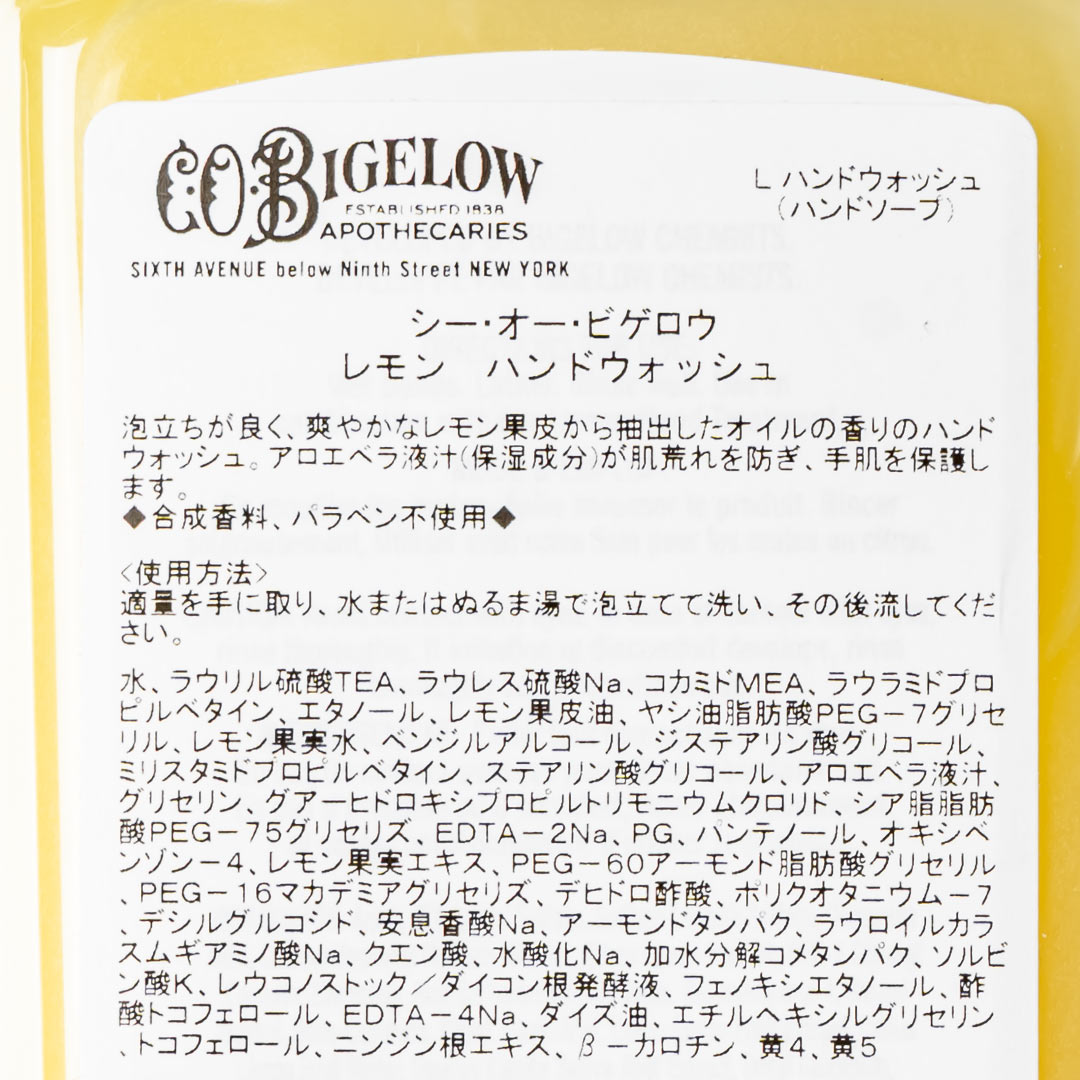 C.O.BIGELOW
ESTABLISHED 1838
APOTHECARIES
SIXTH AVENUE below Ninth Street NEW YORK
L ハンドウォッシュ
(ハンドソープ)
シー・オー・ビゲロウ
レモン　ハンドウォッシュ
泡立ちが良く、爽やかなレモン果皮から抽出したオイルの香りのハンド
ウォッシュ。アロエベラ液汁(保湿成分)が肌荒れを防ぎ、手肌を保護し
ます。
◆合成香料、パラベン不使用◆
<使用方法>
適量を手に取り、水またはぬるま湯で泡立てて洗い、その後流してくだ
さい。
水、ラウリル硫酸TEA、ラウレス硫酸Na、コカミドMEA、ラウラミドプロ
ピルベタイン、エタノール、レモン果皮油、ヤシ油脂肪酸PEG－7グリセ
リル、レモン果実水、ベンジルアルコール、ジステアリン酸グリコール、
ミリスタミドプロピルベタイン、ステアリン酸グリコール、アロエベラ液汁、
グリセリン、グアーヒドロキシプロピルトリモニウムクロリド、シア脂脂肪
酸PEG－75グリセリズ、EDTA－2Na、PG、パンテノール、オキシベ
ンゾン－4、レモン果実エキス、PEG－60アーモンド脂肪酸グリセリル
、PEG－16マカデミアグリセリズ、デヒドロ酢酸、ポリクオタニウム－7
、デシルグルコシド、安息香酸Na、アーモンドタンパク、ラウロイルカラ
スムギアミノ酸Na、クエン酸、水酸化Na、加水分解コメタンパク、ソルビ
ン酸K、レウコノストック／ダイコン根発酵液、フェノキシエタノール、酢
酸トコフェロール、EDTA－4Na、ダイズ油、エチルヘキシルグリセリン
、トコフェロール、ニンジン根エキス、β－カロチン、黄4、黄5